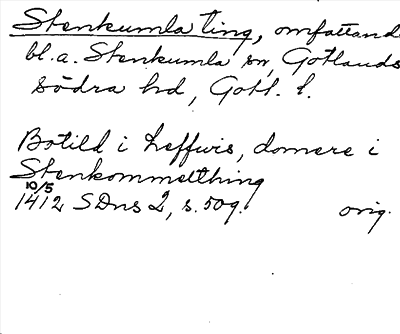 Stenkumla ting, omfattand
bl.a. Stenkumla sn, Gotlands
södra hd, Gotl. l.
Botild i Leffuis, domere i
Stenkommelthing
10/5
1412 SDns 2, s. 509. orig.